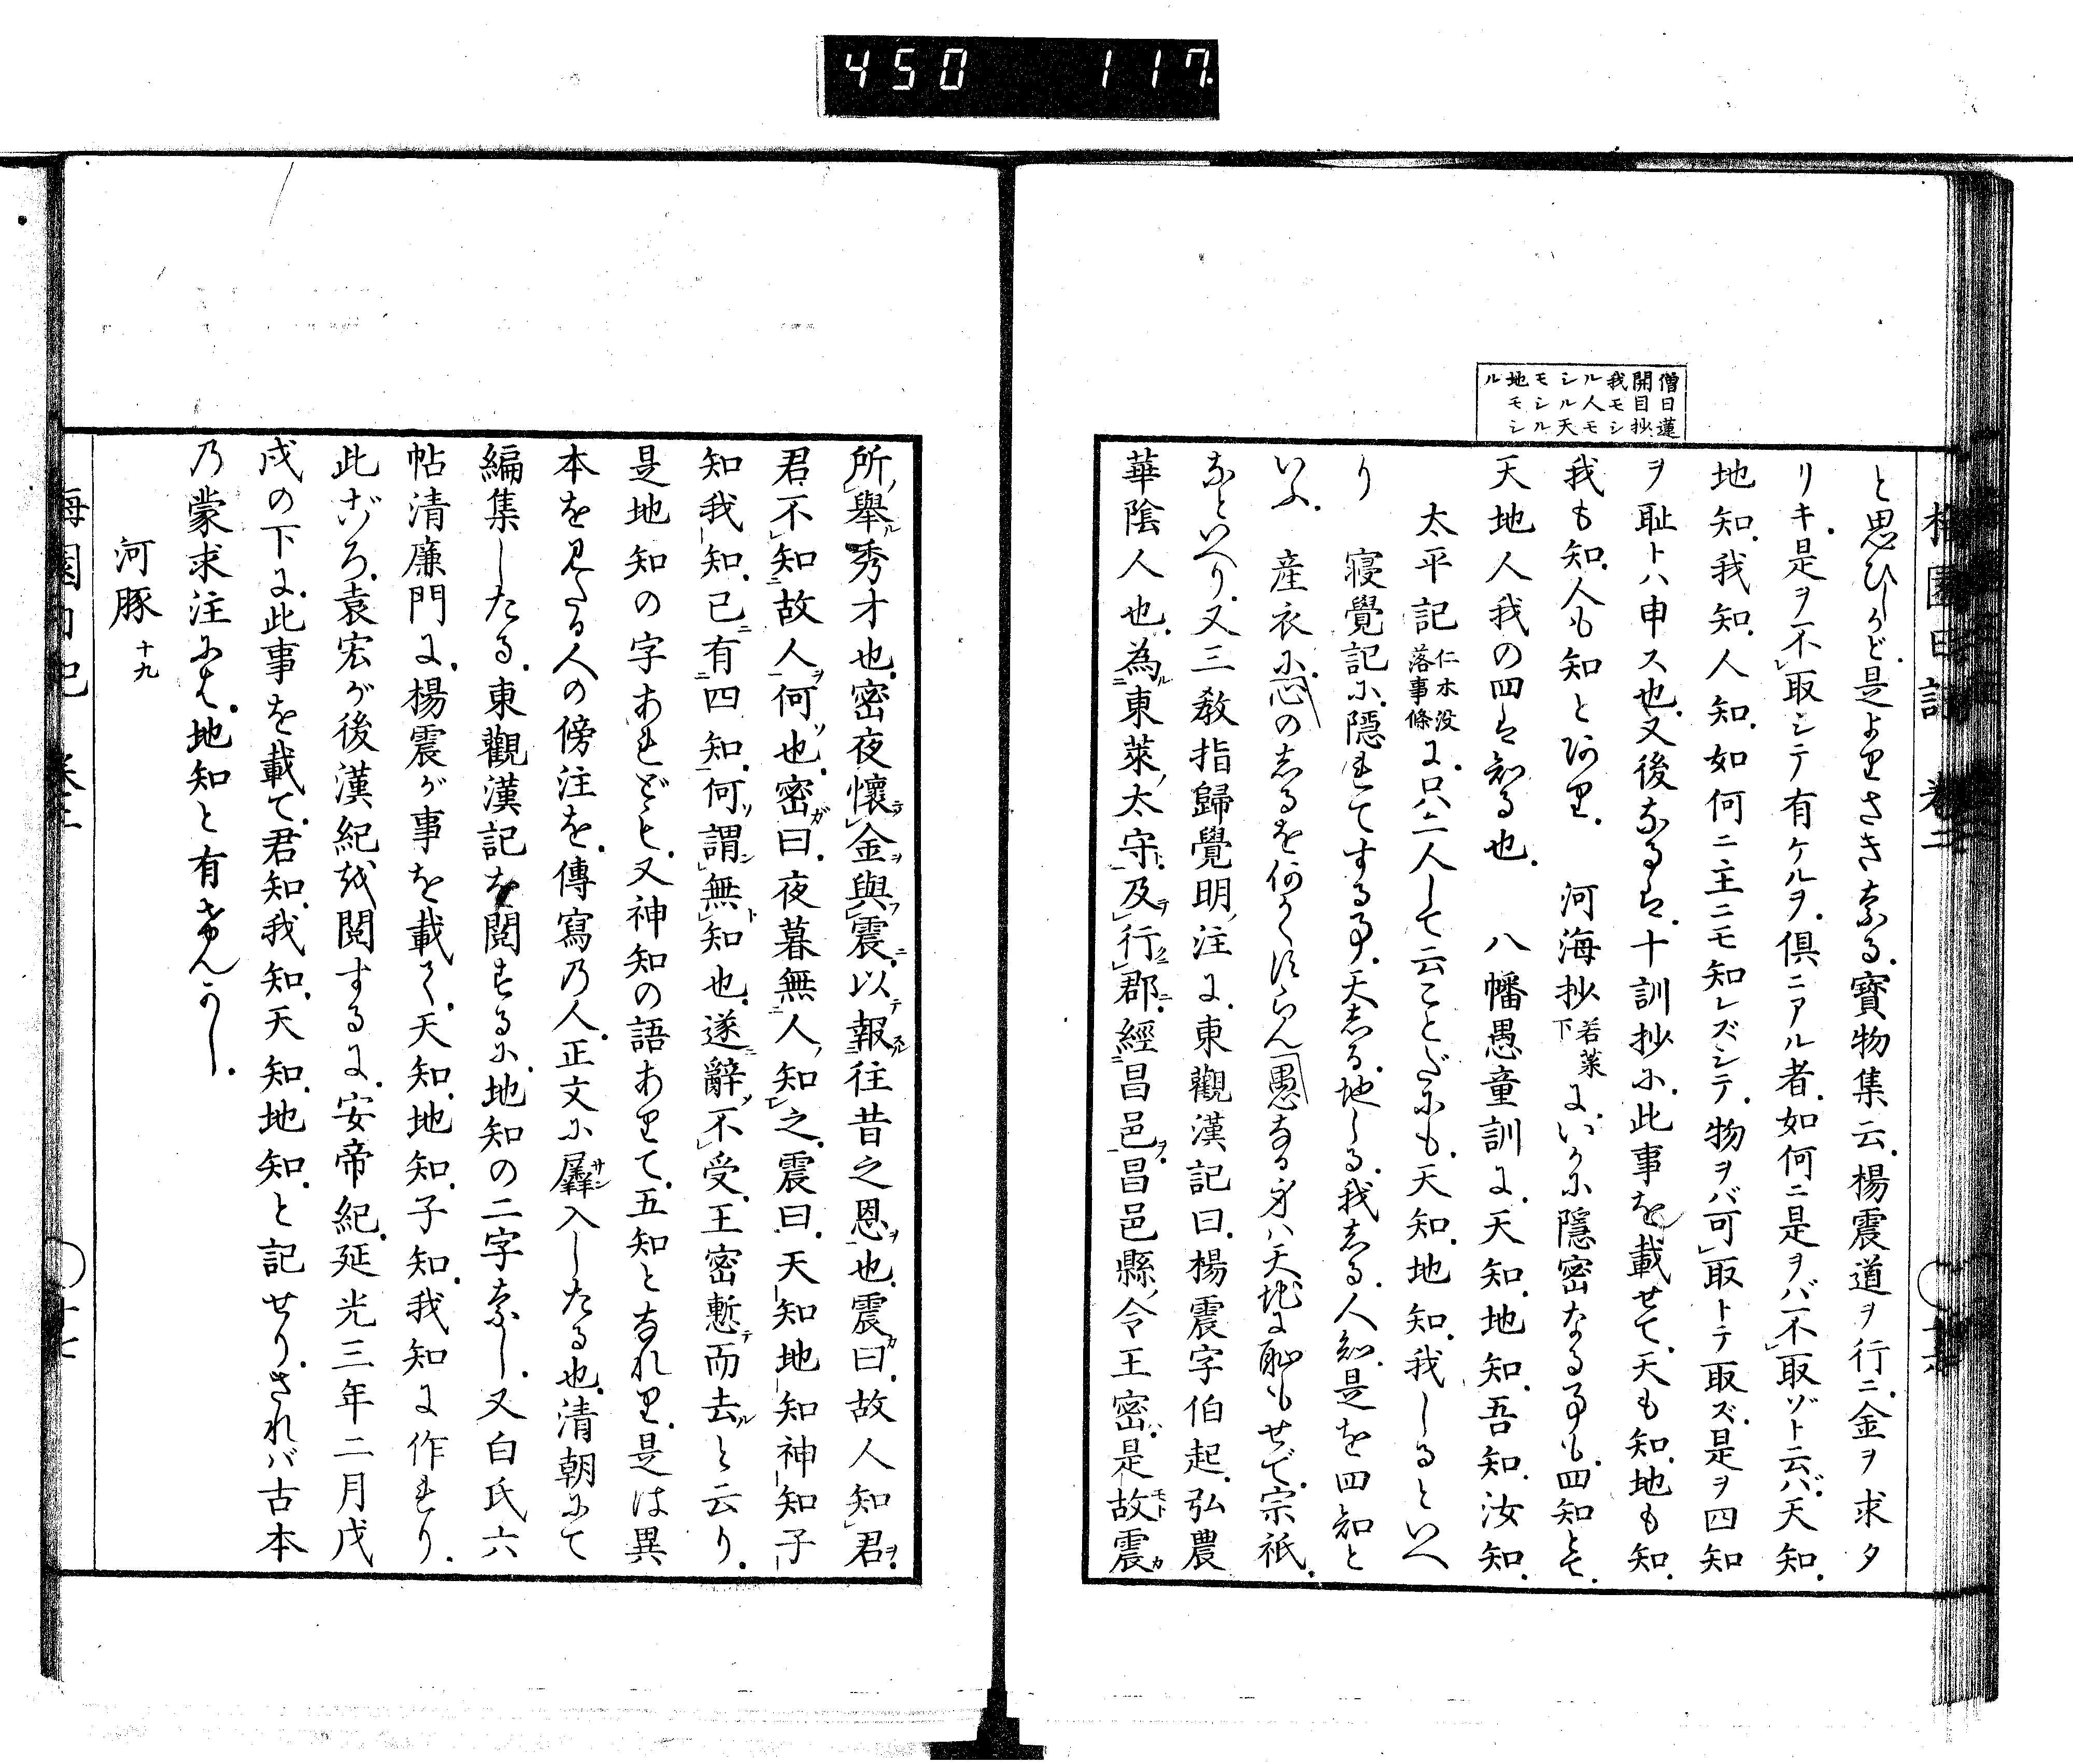 450 117.
僧日蓮
開目抄
我モシ
ル人モ
シル天
モシル
地モシ
ル
と思ひしかど。是よりさきなる。寶物集云。楊震道ヲ行ニ。金ヲ求タ
リキ。是ヲ不取シテ有ケルヲ。倶ニアル者。如何ニ是ヲバ不取ゾト云バ。天知。
地知。我知。人知。如何ニ主ニモ知レズシテ。物ヲバ可取トテ取ズ。是ヲ四知
ヲ耻トハ申ス也。又後なるは。十訓抄に。此事を載せて。天も知。地も知。
我も知。人も知とあり。 河海抄若菜下に。いかに隱密なる事も。四知とて。
天地人我の四は知る也。 八幡愚童訓に。天知。地知。吾知。汝知。
太平記仁木没落事條に。只二人して云ことだにも。天知。地知。我しるといへ
り 寝覺記に。隱れてする事。天志る。地しる。我志る。人知。是を四知と
いふ。 産衣に。心の志るを何かくすらん愚なる身ハ天地に耻もせで。宗祇。
なといへり。又三教指歸覺明ノ注に。東觀漢記曰。楊震字伯起。弘農
華陰人也。為ル東萊ノ太守ト。及テ行クニ郡ニ。經昌邑ヲ。昌邑縣ノ令王密ハ。是故モト震カ
所ノ舉ル秀才也。密夜懷テ金ヲ與フ震ニ。以テ報スル往昔之恩ヲ也。震カ曰。故人知君ヲ。
君不知故人ヲ何ソ也。密ガ曰。夜暮無人ノ知之。震曰。天知地知神知子
知我知。已ニ有四知。何ソ謂ン無ト知也。遂ニ辭ノ不受。王密慙テ而去ルと云り。
是地知の字あれども。又神知の語ありて。五知となれり。是は異
本を見たる人の傍注を。傳寫乃人。正文に羼サン入したる也。清朝にて
編集したる。東觀漢記を閲するに。地知の二字なし。又白氏六
帖清廉門に。楊震が事を載て。天知。地知。子知。我知に作れり。
此ごろ。袁宏が後漢紀を閲するに。安帝紀。延光三年二月戊
戌の下に。此事を載て。君知。我知。天知。地知。と記せり。されバ古本
乃蒙求注には。地知と有けんかし。
河豚 十九